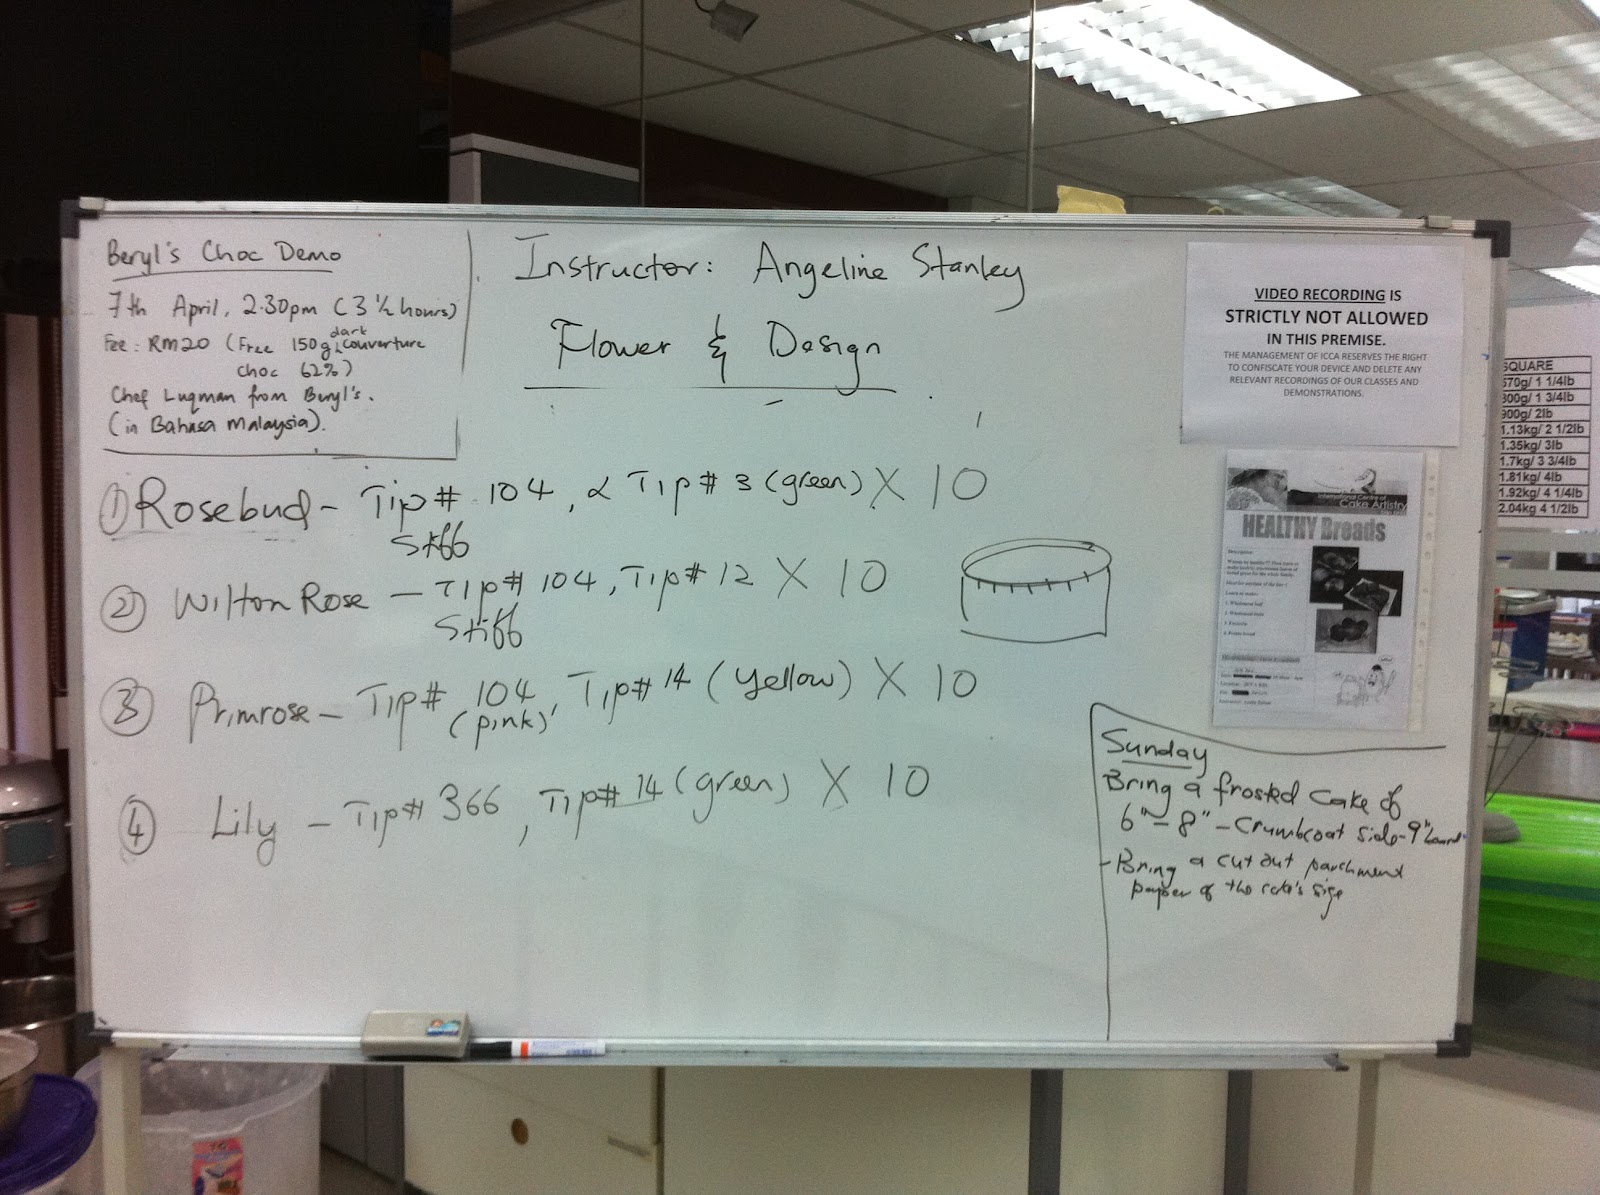 Beryl's Choc Demo
7th April, 2.30pm (3 ½ hours)
Fee: RM20 (Free 150g dark couverture
choc 62%)
Chef Luqman from Beryl's.
(in Bahasa Malaysia).
Instructor: Angeline Stanley
Flower & Design
① Rosebud - Tip# 104, & Tip# 3 (green) X 10
Stiff
② Wilton Rose - Tip# 104, Tip# 12 X 10
Stiff
③ Primrose - Tip# 104, Tip# 14 (Yellow) X 10
(pink)
④ Lily - Tip# 366, Tip# 14 (green) X 10
VIDEO RECORDING IS
STRICTLY NOT ALLOWED
IN THIS PREMISE.
THE MANAGEMENT OF ICCA RESERVES THE RIGHT
TO CONFISCATE YOUR DEVICE AND DELETE ANY
RELEVANT RECORDINGS OF OUR CLASSES AND
DEMONSTRATIONS.
International Centre of
Cake Artistry
HEALTHY Breads
Sunday
Bring a frosted cake of
6" - 8" - Crumbcoat side - 9" board
- Bring a cut out parchment
paper of the cake's size
SQUARE
570g/ 1 1/4lb
800g/ 1 3/4lb
900g/ 2lb
1.13kg/ 2 1/2lb
1.35kg/ 3lb
1.7kg/ 3 3/4lb
1.81kg/ 4lb
1.92kg/ 4 1/4lb
2.04kg 4 1/2lb